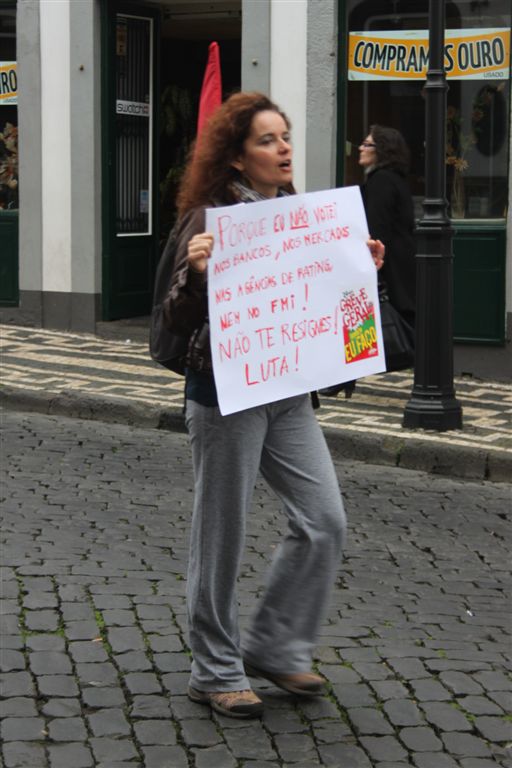 COMPRAMOS OURO
USADO
RO
USADO
swatch
PORQUE EU NÃO VOTEI
NOS BANCOS, NOS MERCADOS
NAS AGÊNCIAS DE RATING,
NEM NO FMI!
NÃO TE RESIGNES!
LUTA!
GREVE
GERAL
EU FAÇO